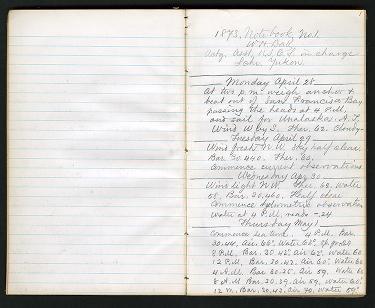 1
1873, Notebook No 1
W H Dall
Actg. Asst. U.S.C.S. in charge
Schr. Yukon.
Monday April 28
At two p.m. weigh anchor &
beat out of San Francisco Bay
passing the heads at 4 P.M.
and sail for Unalashka. A.T.
Wind W by S. Ther. 62. Cloudy-
Tuesday April 29
Wind fresh N.W. Sky half clear.
Bar. 30.440. Ther. 60.
Commence current observations
Wednesday Apr 30
Wind light NW. Ther. 62. Water
58. Bar. 30.460. Half clear
Commence hydrometric observation
Water at 4 P.M. reads -.24
Thursday May 1
Commence sea temp. 4 P.M. Bar.
30.44. Air. 60° Water 60°
8 P.M. Bar. 30.42 Air 62° Water 60
12 P.M. Bar. 30.42. Air 60° Water 60
4 A.M. Bar 30.35. Air 59. Water 60
8 A.M. Bar. 30.39. Air 59. Water 60°
12 M. Bar. 30.43. Air 70. Water 59°